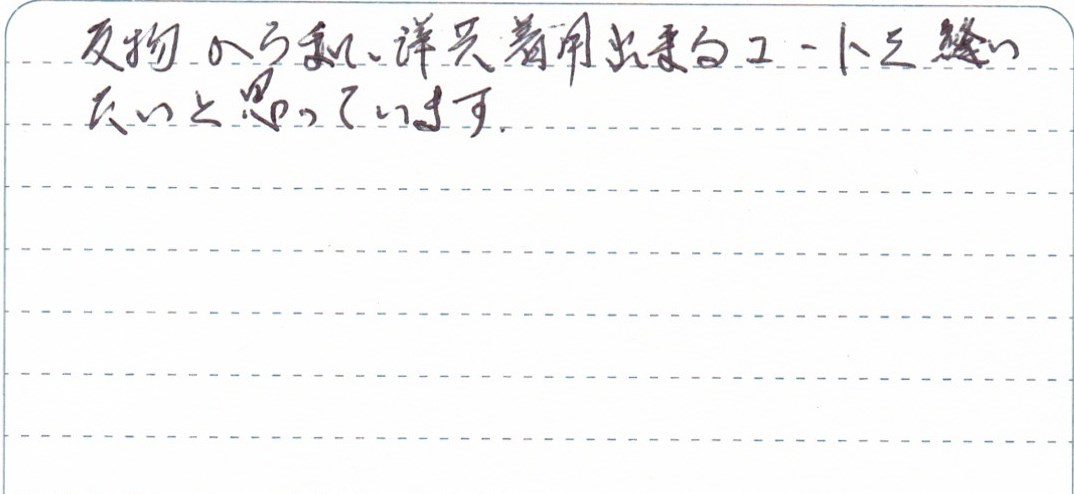 反物からまし、詳共着用出来るコートを縫い
たいと思っています。